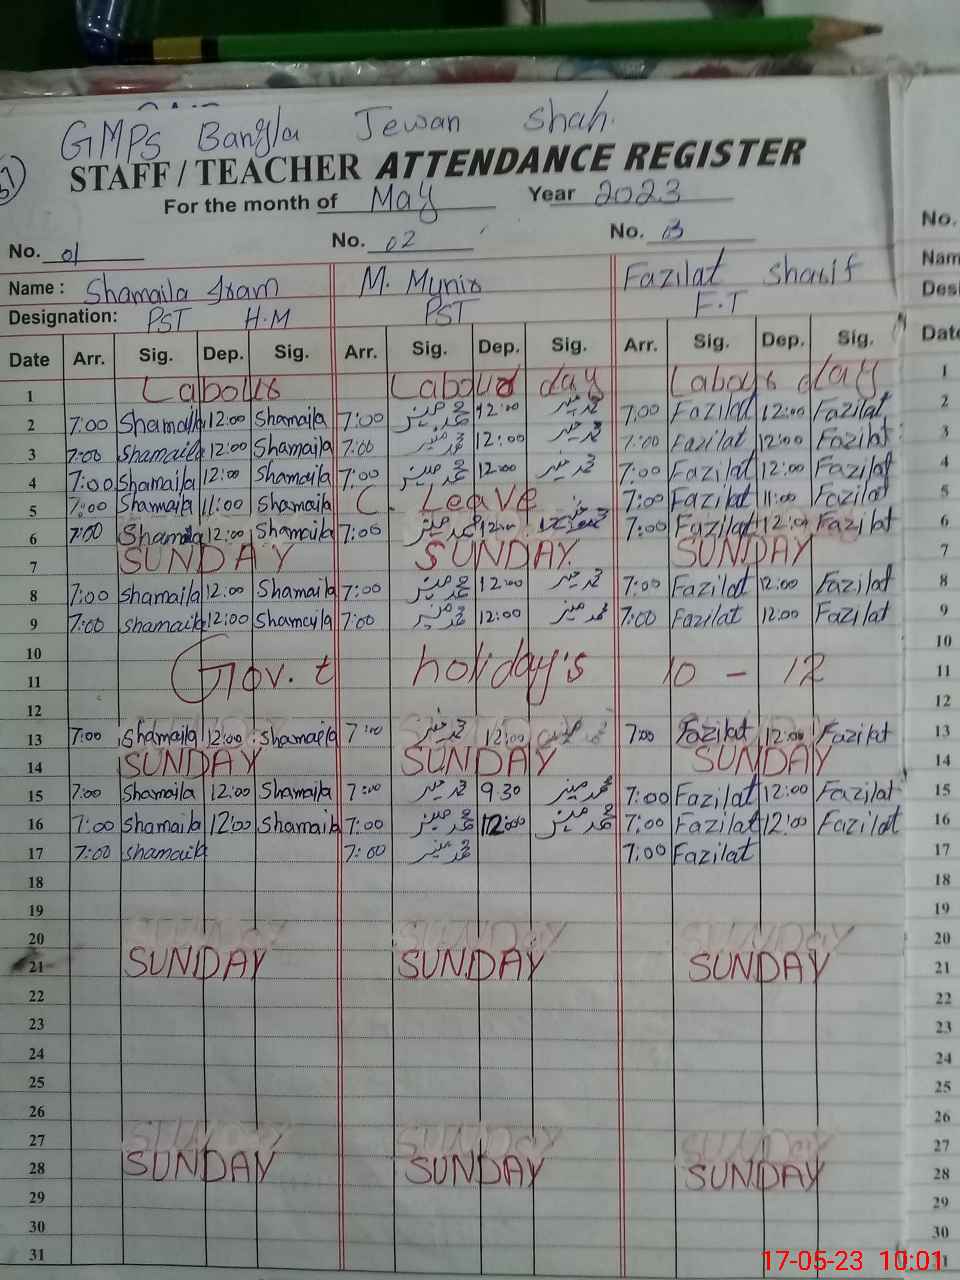 GMPS Bangla Jewan Shah.
STAFF / TEACHER ATTENDANCE REGISTER
For the month of May Year 2023
No. 01 No. 02 No. 03 No.
Name : Shamaila Iram M. Munir Fazilat Sharif Nam
Designation: PST H.M PST E.T Desi
Date Arr. Sig. Dep. Sig. Arr. Sig. Dep. Sig. Arr. Sig. Dep. Sig. Date
1 Labour Labour day Labour day 1
2 7:00 Shamaila 12:00 Shamaila 7:00 محمد منیر 12:00 محمد منیر 7:00 Fazilat 12:00 Fazilat 2
3 7:00 Shamaila 12:00 Shamaila 7:00 محمد منیر 12:00 محمد منیر 7:00 Fazilat 12:00 Fazilat 3
4 7:00 Shamaila 12:00 Shamaila 7:00 محمد منیر 12:00 محمد منیر 7:00 Fazilat 12:00 Fazilat 4
5 7:00 Shamaila 11:00 Shamaila C. Leave 7:00 Fazilat 11:00 Fazilat 5
6 7:00 Shamaila 12:00 Shamaila 7:00 محمد منیر 12:00 محمد منیر 7:00 Fazilat 12:00 Fazilat 6
7 SUNDAY SUNDAY SUNDAY 7
8 7:00 Shamaila 12:00 Shamaila 7:00 محمد منیر 12:00 محمد منیر 7:00 Fazilat 12:00 Fazilat 8
9 7:00 Shamaila 12:00 Shamaila 7:00 محمد منیر 12:00 محمد منیر 7:00 Fazilat 12:00 Fazilat 9
10 10
11 Gov.t holiday's 10 - 12 11
12 12
13 7:00 Shamaila 12:00 Shamaila 7:00 محمد منیر 12:00 محمد منیر 7:00 Fazilat 12:00 Fazilat 13
14 SUNDAY SUNDAY SUNDAY 14
15 7:00 Shamaila 12:00 Shamaila 7:00 محمد منیر 9 30 محمد منیر 7:00 Fazilat 12:00 Fazilat 15
16 7:00 Shamaila 12:00 Shamaila 7:00 محمد منیر 12:00 محمد منیر 7:00 Fazilat 12:00 Fazilat 16
17 7:00 Shamaila 7:00 محمد منیر 7:00 Fazilat 17
18 18
19 19
20 SUNDAY SUNDAY SUNDAY 20
21 SUNDAY SUNDAY SUNDAY 21
22 22
23 23
24 24
25 25
26 26
27 SUNDAY SUNDAY SUNDAY 27
28 SUNDAY SUNDAY SUNDAY 28
29 29
30 30
31
17-05-23 10:01